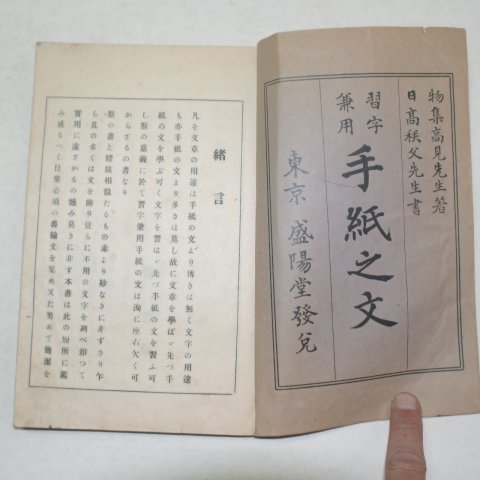 物集高見先生著
日高秩父先生書
習字
兼用
手紙之文
東京 盛陽堂發兌
緒言
凡そ文章の用途は手紙の文より博きは無く文字の用途
も亦手紙の文より多きは莫し故に文章を學ばゞ先づ手
紙の文を學ぶ可く文字を習はゞ先づ手紙の文を習ふ可
し斯の意義に於て習字兼用手紙の文は洵に座右欠く可
からざるの書なり
斯の書と體裁相似たるもの素より尠なきに非ずさり乍
ら其の多くは文を飾り徒らに不用の文字を列べ動つて
實用に遠ざかるの憾み莫きに非す本書は此の短所に鑑
み成るべく日常必須の書翰文を集め又た努めて簡潔を